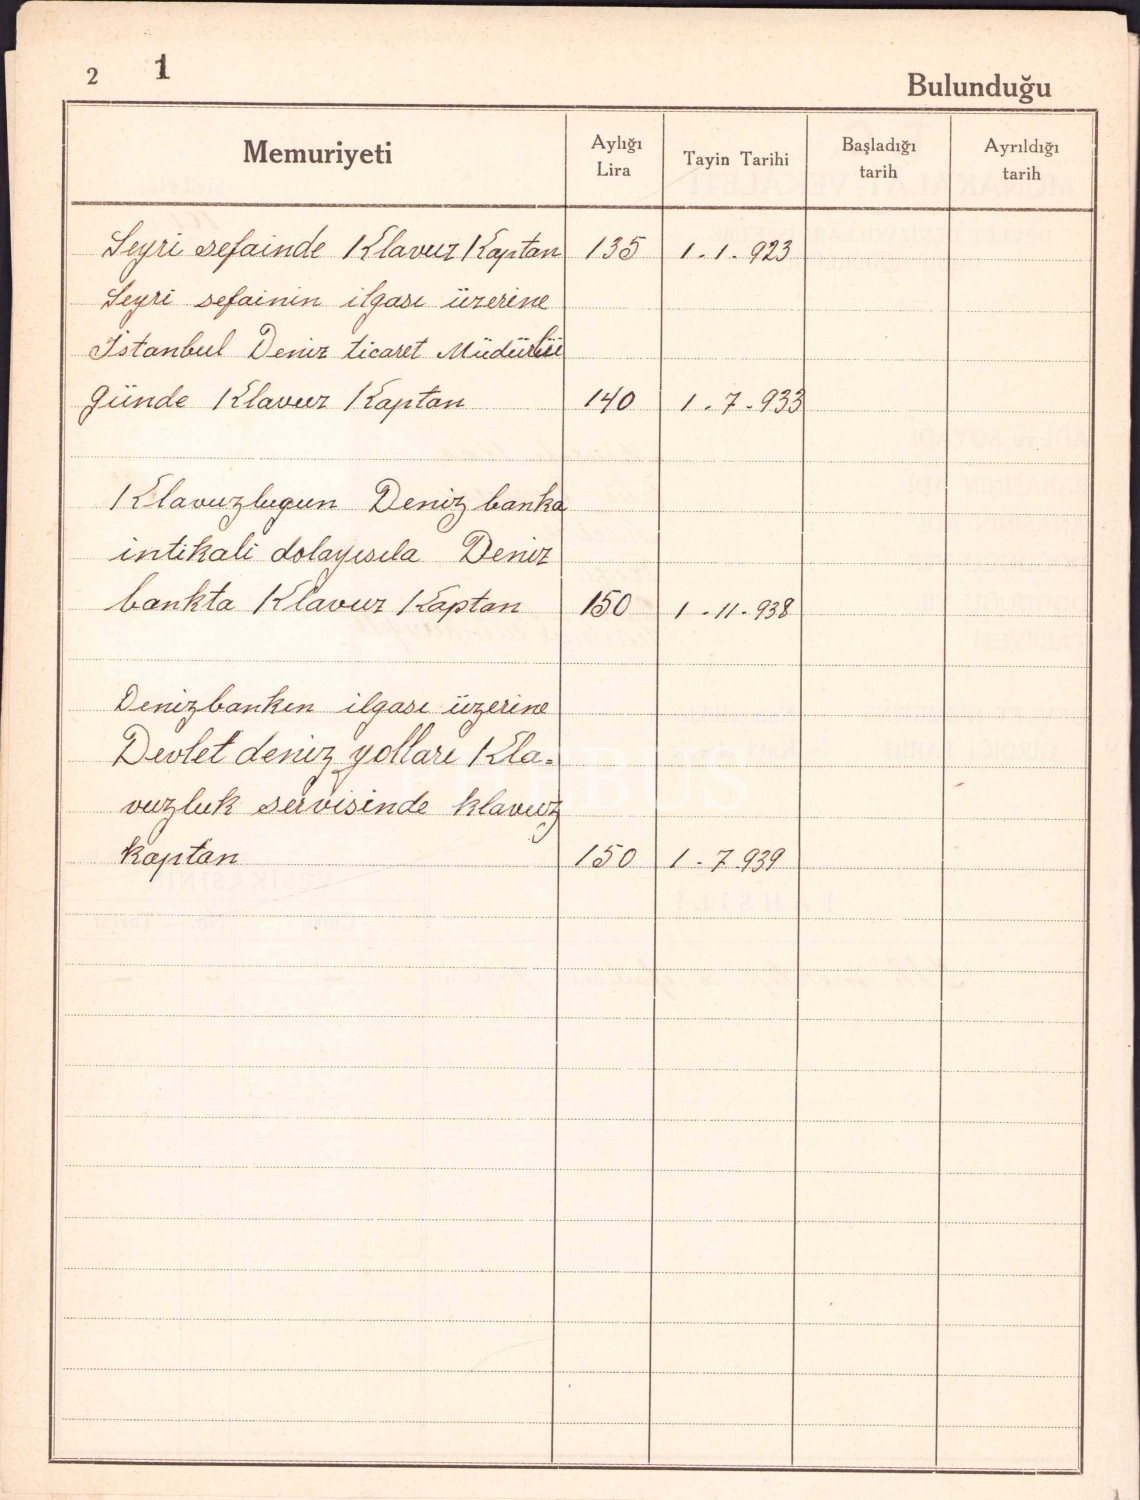 2 1
Bulunduğu
Memuriyeti
Aylığı
Lira
Tayin Tarihi
Başladığı
tarih
Ayrıldığı
tarih
Seyri sefainde Klavuz Kaptan 135 1.1.923
Seyri sefainin ilgası üzerine
İstanbul Deniz ticaret Müdürlü
günde Klavuz Kaptan 140 1.7.933
Klavuzlugun Deniz banka
intikali dolayısıla Deniz
bankta Klavuz Kaptan 150 1.11.938
Denizbankın ilgası üzerine
Devlet deniz yolları Kla=
vuzluk servisinde klavuz
kaptan 150 1.7.939